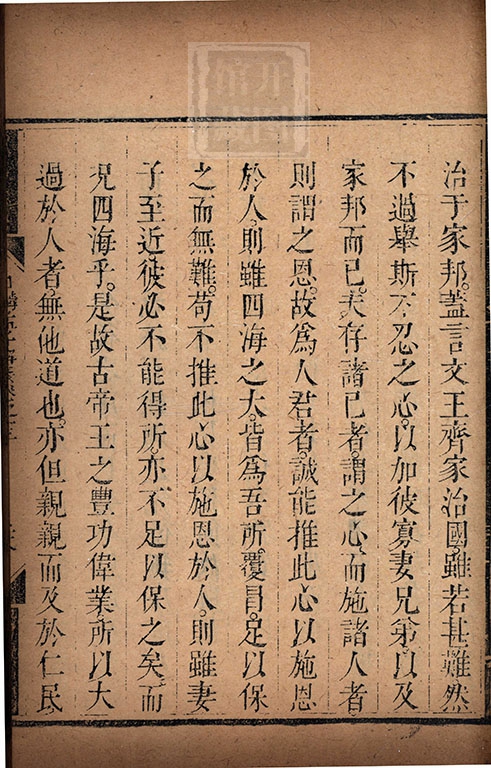 治于家邦。蓋言文王齊家治國。雖若甚難。然
不過舉斯不忍之心。以加彼寡妻兄弟以及
家邦而已矣。存諸已者。謂之心。而施諸人者
則謂之恩。故為人君者。誠能推此心以施恩
於人。則雖四海之大。皆為吾所覆冒。足以保
之而無難。苟不推此心以施恩於人。則雖妻
子至近。彼必不能得所。亦不足以保之矣。而
况四海乎。是故古帝王之豐功偉業。所以大
過於人者。無他道也。亦但親親而及於仁民